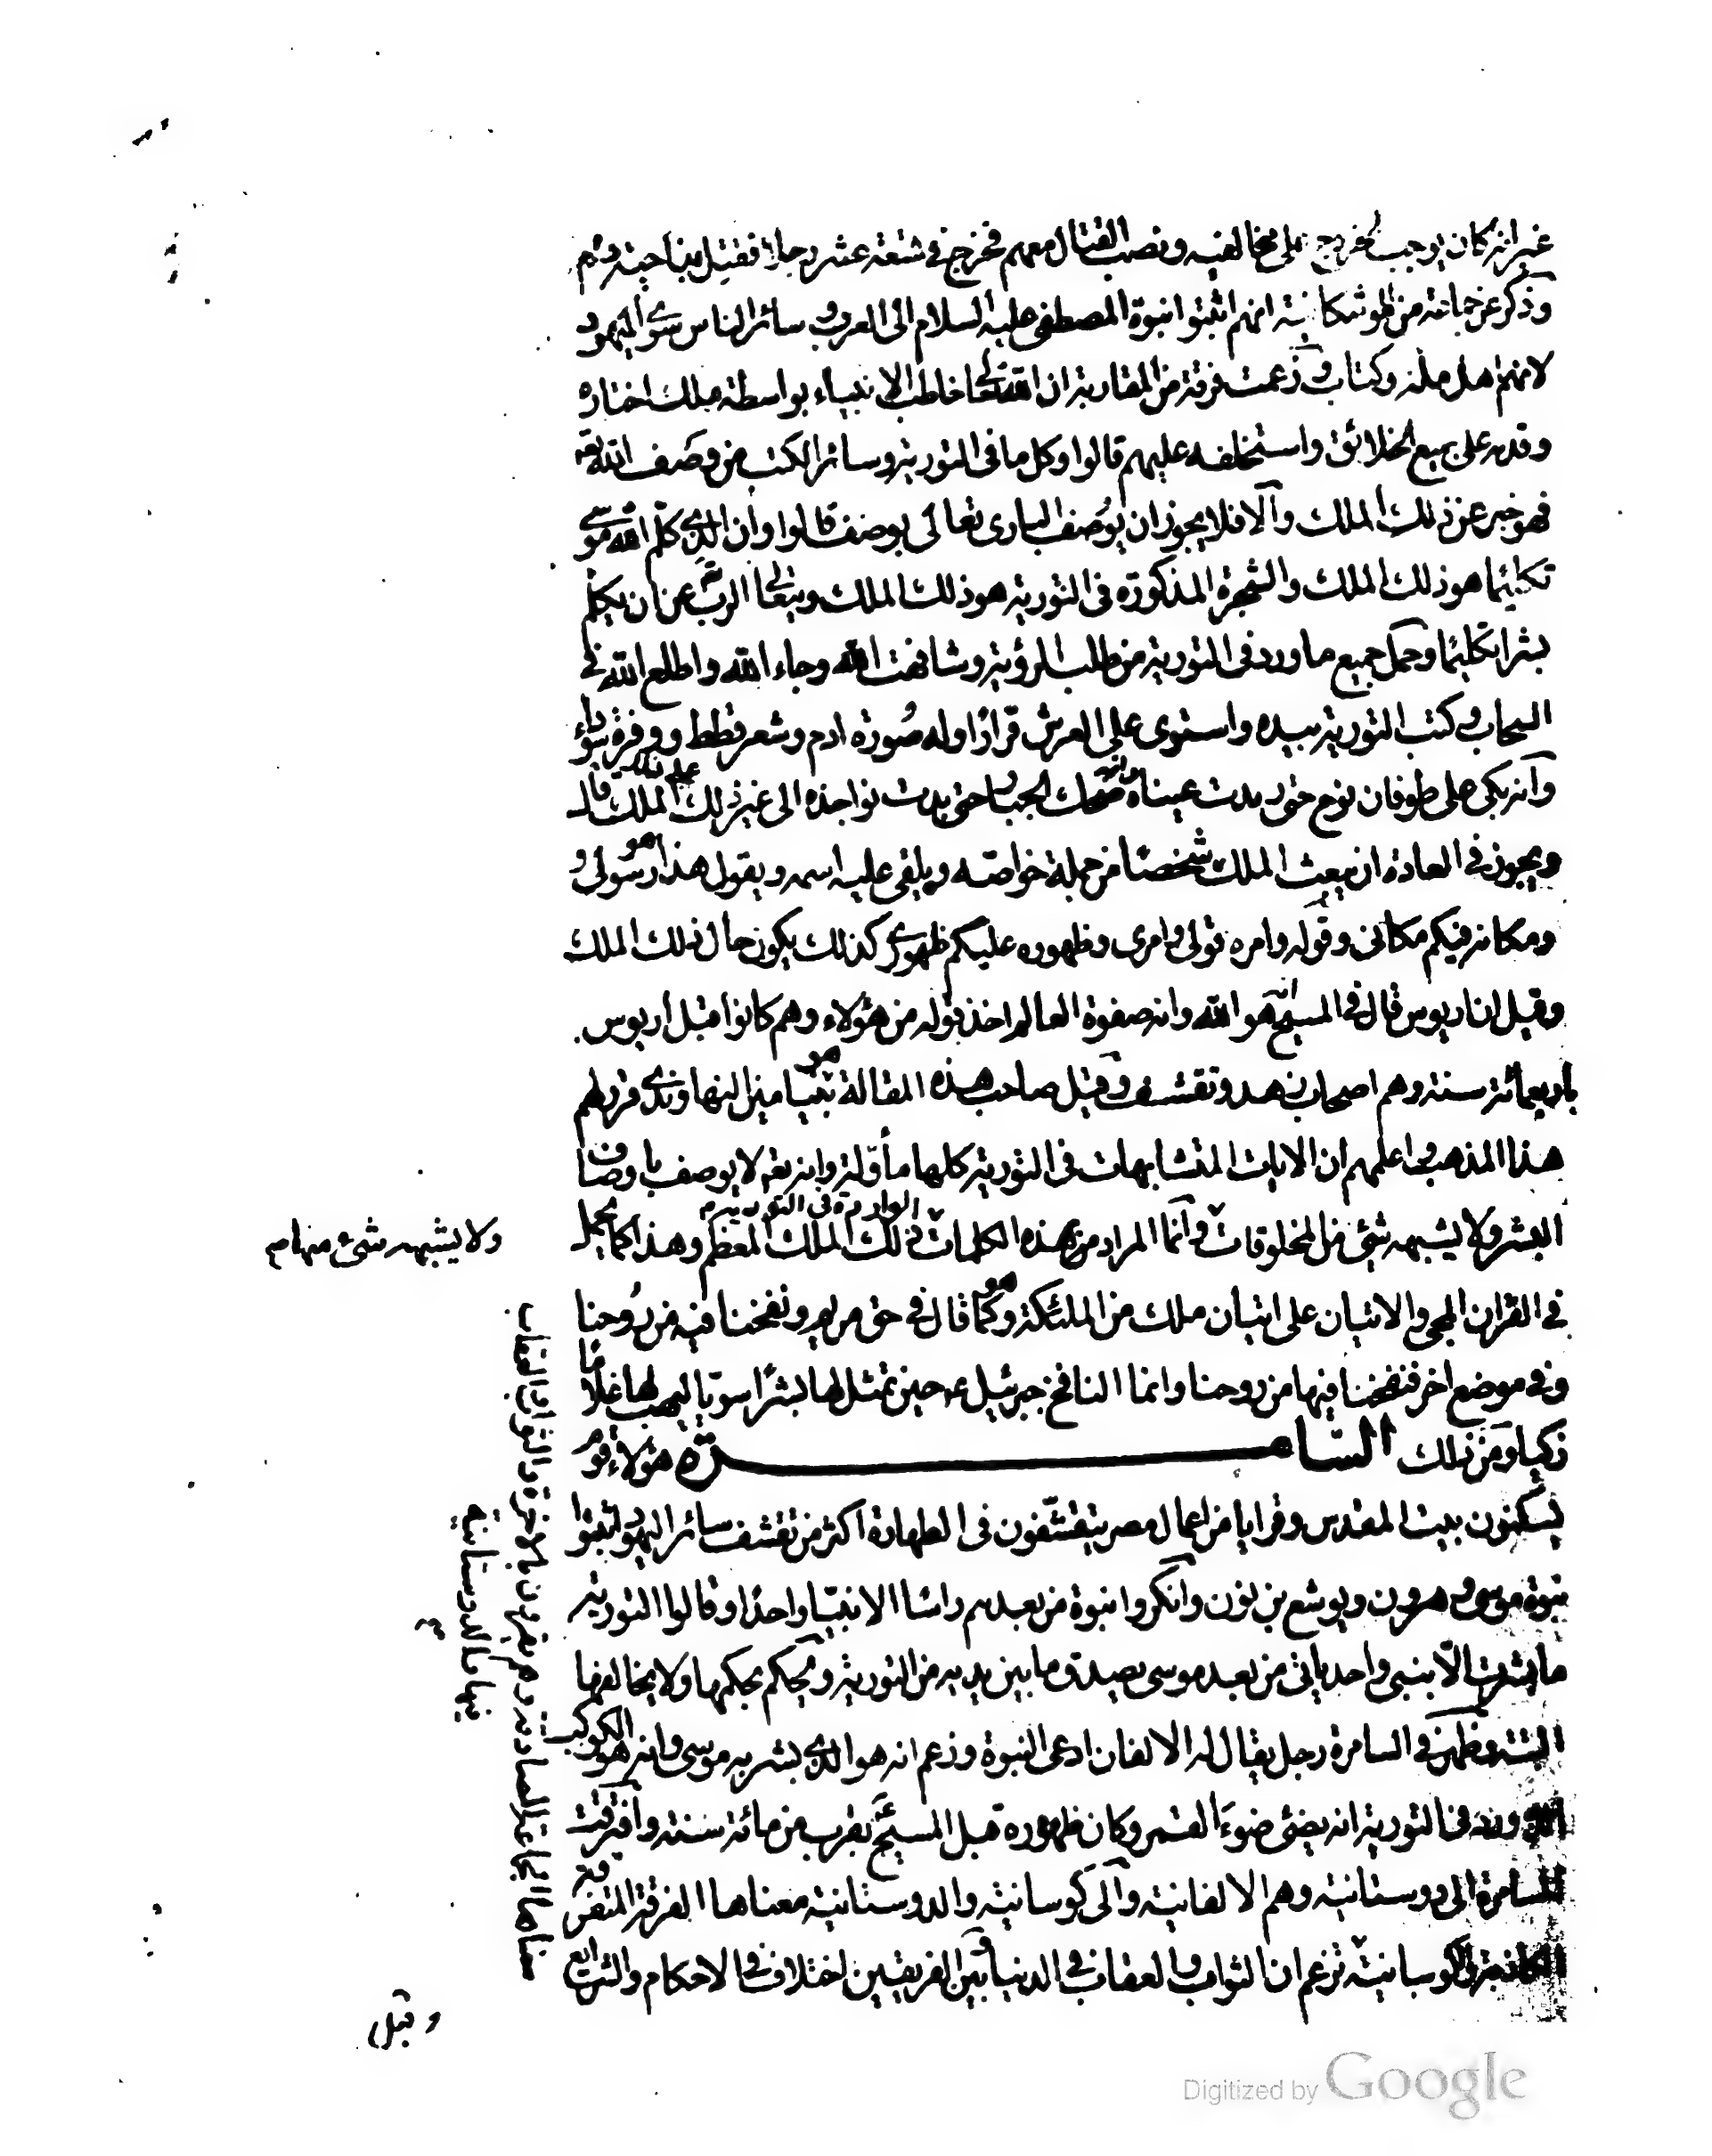 غير انه كان يوجب الخروج على مخالفيه ونصب القتال معهم فخرج في تسعة عشر رجلا فقتل بناحية قم
وذكر عن جماعة من الموشكانية انهم اثبتوا نبوة المصطفى عليه السلام الى العرب و سائر الناس سوى اليهود
لانهم اهل ملة وكتاب و زعمت فرقة من المقاربة ان الله تعالى خاطب الانبياء بواسطة ملك اختاره
وقدمه على جميع الخلائق واستخلفه عليهم قالوا وكل ما في التورية وسائر الكتب من وصف الله تعه
فهو خبر عن ذلك الملك والا فلا يجوز ان يوصف البارى تعالى بوصف قالوا وان الذى كلم الله موسى
تكليما هو ذلك الملك والشجرة المذكورة في التورية هو ذلك الملك ويتعالى الرب عن ان يكلم
بشرا تكليما وحمل جميع ما ورد في التورية من طلب الرؤية وشافهت الله وجاء الله واطلع الله في
السحاب و كتب التورية بيده واستوى على العرش قرارا وله صورة ادم وشعر قطط ووفرة سوداء
وانه بكى على طوفان نوح حتى رمدت عيناه وانه ضحك الجبار حتى بدت نواجذه الى غير ذلك على ذلك الملك قال
ويجوز في العادة ان يبعث الملك شخصا من جملة خواصه ويلقى عليه اسمه ويقول هذا هو رسولى و
ومكانه فيكم مكانى وقوله وامره قولى وامرى وظهوره عليكم ظهورى كذلك يكون حال ذلك الملك
وقيل ان اريوس قال في المسيح انه هو الله وانه صفوة العالم اخذ قوله من هؤلاء وهم كانوا قبل اريوس
باربعمائة سنة وهم اصحاب زهد وتقشف وقيل صاحب هذه المقالة هو بنيامين النهاوندى قرر لهم
هذا المذهب و اعلمهم ان الايات المتشابهات في التورية كلها مأولة وانه تعه لا يوصف باوصاف
البشر ولا يشبه شئ من المخلوقات وانما المراد من هذه الكلمات الواردة في التورية ذلك الملك المعظم وهذا كما يحمل
ولا يشبهه شئ منها صح
في القران المجى والاتيان على اتيان ملك من الملئكة وهو كما قال في حق مريم ونفخنا فيه من روحنا
وفي موضع اخر فنفخنا فيها من روحنا وانما النافخ جبرئيل عم حين تمثل لها بشرا سويا ليهب لها غلاما
زكيا ومن ذلك السامرة هؤلاء قوم
يسكنون بيت المقدس وقرايا من اعمال مصر يتقشفون في الطهارة اكثر من تقشف سائر اليهود اثبتوا
نبوة موسى و هرون ويوشع بن نون وانكروا نبوة من بعدهم راسا الا نبيا واحدا وقالوا التورية
ما بشرت الا بنبى واحد ياتى من بعد موسى يصدق ما بين يديه من التورية ويحكم بحكمها ولا يخالفها
البتة وظهر في السامرة رجل يقال له الالفان ادعى النبوة وزعم انه هو الذى بشر به موسى وانه هو الكوكب
الذى ورد في التورية انه يضئ ضوء القمر وكان ظهوره قبل المسيح عم بقرب من مائة سنة وافترقت
السامرة الى دوستانية وهم الالفانية والى كوسانية والدوستانية معناها الفرقة المتفرقة
الكاذبة والكوسانية تزعم ان الثواب والعقاب في الدنيا وبين الفريقين اختلاف في الاحكام والشرايع
معناها الجماعة الصادقة وهم يقرون بالاخرة والثواب والعقاب
فيها والدوستانية
وقبل